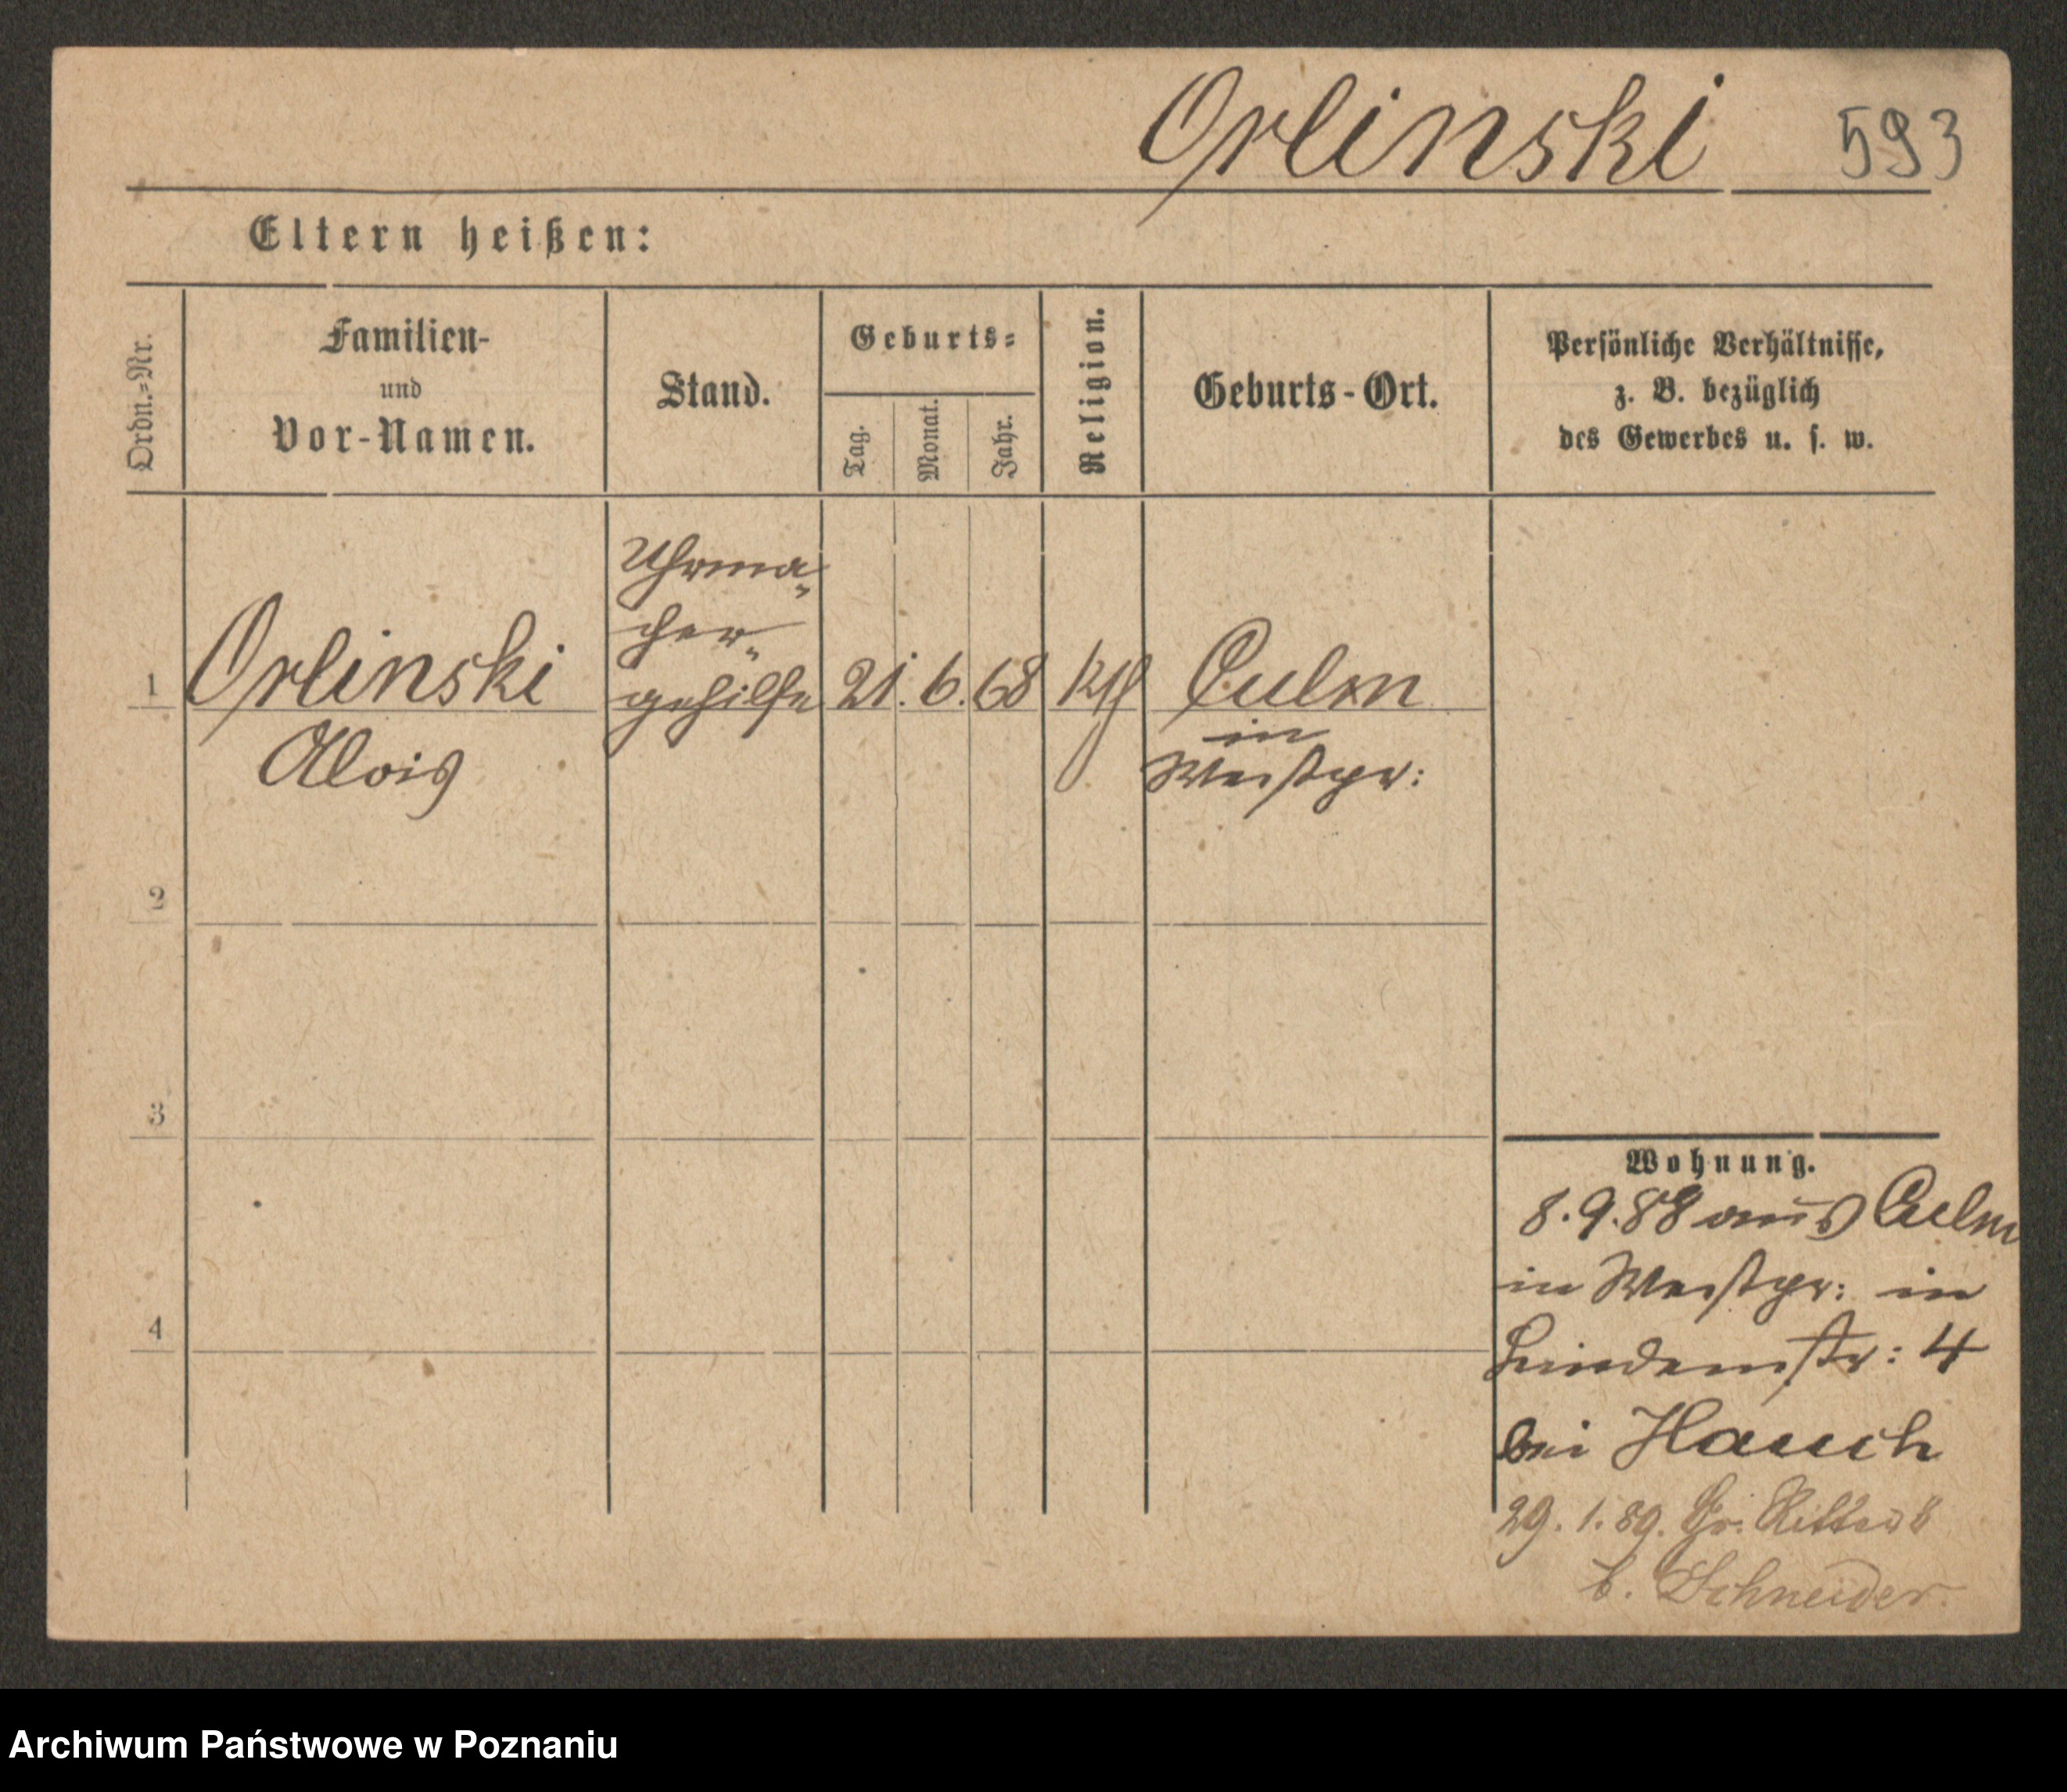 Orlinski 593
Eltern heißen:
Ordn.=Nr.
Familien-
und
Vor-Namen.
Stand.
Geburts=
Tag.
Monat.
Jahr.
Religion.
Geburts-Ort.
Persönliche Verhältnisse,
z. B. bezüglich
des Gewerbes u. s. w.
Uhrma„
cher„
1 Orlinski gehilfe 21. 6. 68 Culm
in
Alois Westpr:
2
3
4
Wohnung.
8.9.88 aus Culm
in Westpr: in
Lindenstr: 4
bei Hauch
29. 1. 89. Gr. Ritter 8
b. Schneider.
Archiwum Państwowe w Poznaniu